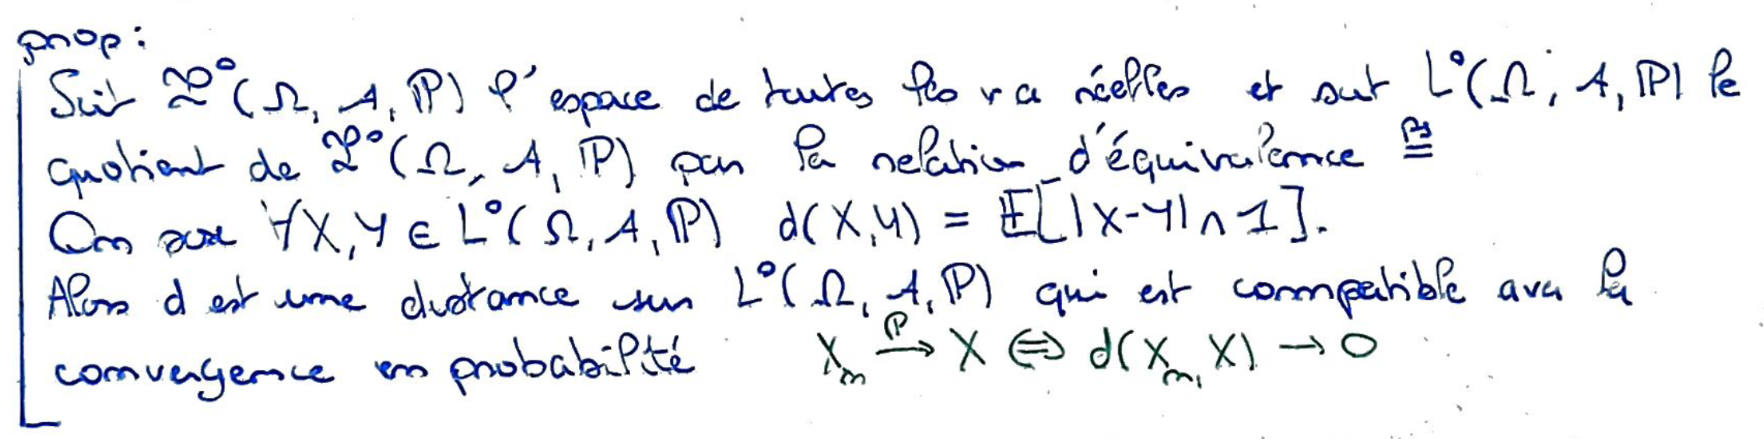 prop:
Soit ℒ°(Ω, A, ℙ) l'espace de toutes les va réelles et soit L°(Ω, A, ℙ) le
quotient de ℒ°(Ω, A, ℙ) par la relation d'équivalence ≅ᵖˢ
On pose ∀X, Y ∈ L°(Ω, A, ℙ) d(X,Y) = 𝔼[|X-Y|∧1].
Alors d est une distance sur L°(Ω, A, ℙ) qui est compatible avec la
convergence en probabilité Xₙ —ℙ→ X ⇔ d(Xₙ, X) → 0